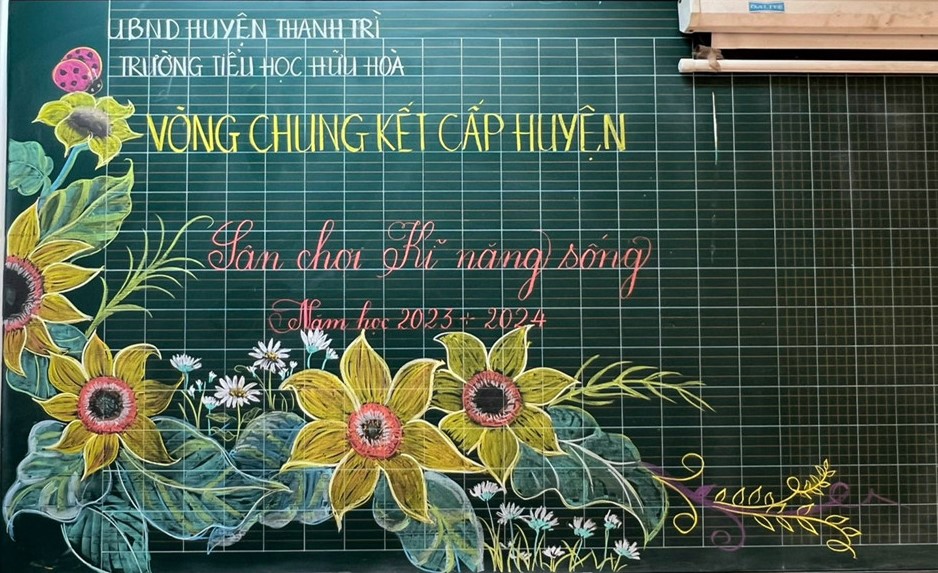 UBND HUYỆN THANH TRÌ
TRƯỜNG TIỂU HỌC HỮU HÒA
VÒNG CHUNG KẾT CẤP HUYỆN
Sân chơi Kĩ năng sống
Năm học 2023 ÷ 2024